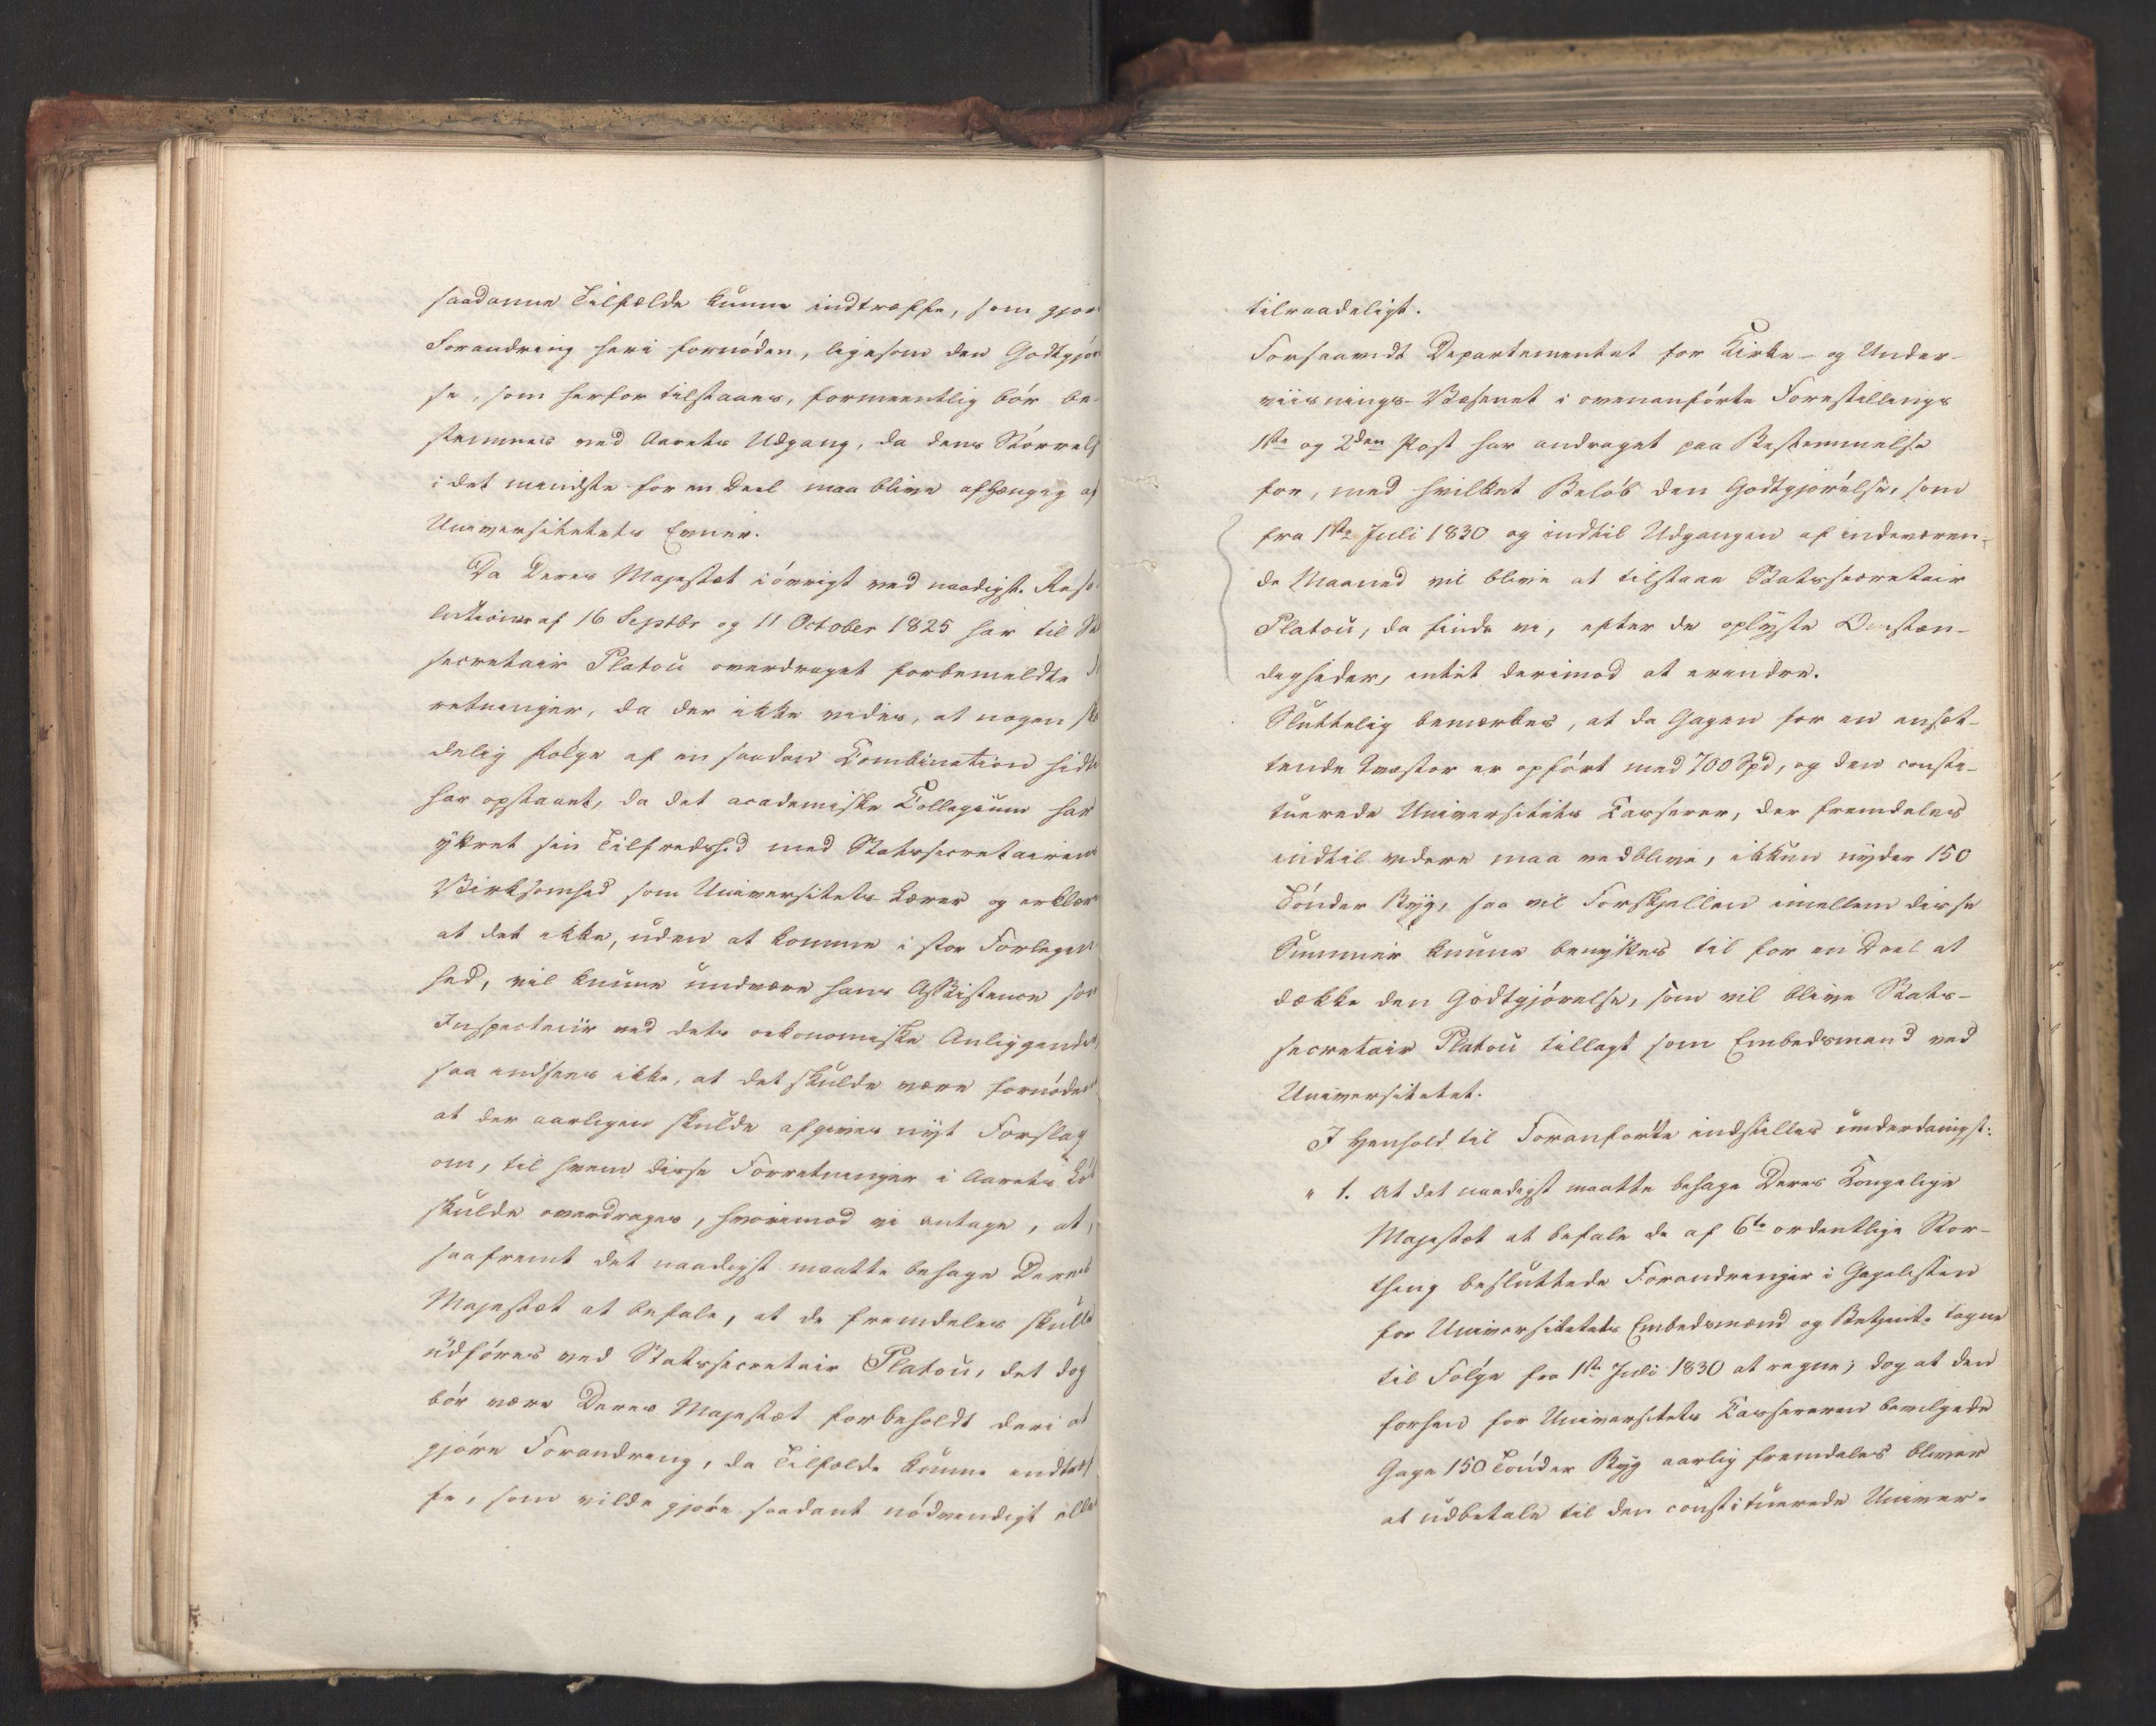 saadanne Tilfælde kunne indtræffe, som gjør
Forandring heri fornöden, ligesom den Godtgjör
se, som herfor tilstaaes, formeentlig bör be-
stemmes ved Aarets Udgang, da dens Störrels
i det mindste for en Deel maa blive afhængig af
Universitetets Evner.
Da Deres Majestæt iövrigt ved naadigst. Reso-
lutioner af 16 Septbr og 11 October 1825 har til St
secretair Platou overdraget forbemeldte
retninger, da der ikke vides, at nogen ska
delig Fölge af en saadan Combination hidti
har opstaaet, da det academiske Collegium har
yttret sin Tilfredshed med Statssecretairens
Virksomhed som Universitets Lærer og erklær
at det ikke, uden at komme i stor Forlegen-
hed, vil kunne undvære hans Assistence som
Inspecteur ved dets oekonomiske Anliggender,
saa indsees ikke, at det skulde være fornöden
at der aarligen skulde afgives nyt Forslag
om, til hvem disse Forretninger i Aarets Löb
skulde overdrages, hvorimod vi antage, at,
saafremt det naadigst maatte behage Deres
Majestæt at befale, at de fremdeles skulde
udföres ved Statssecretair Platou, det dog
bör være Deres Majestæt forbeholdt deri at
gjöre Forandring, da Tilfælde kunne indtræf
fe, som vilde gjöre saadant nödvendigt eller
tilraadeligt.
Forsaavidt Departementet for Kirke- og Under-
viisnings-Væsenet i ovenanförte Forestillings
1ste og 2den Post har andraget paa Bestemmelse
for, med hvilket Belöb den Godtgjörelse, som
fra 1ste Juli 1830 og indtil Udgangen af indeværen-
de Maaned vil blive at tilstaae Statssecretair
Platou, da finde vi, efter de oplyste Omstæn-
digheder, intet derimod at erindre.
Sluttelig bemærkes, at da Gagen for en ansæt-
tende Qvæstor er opfört med 700 Spd, og den consti-
tuerede Universitets Casserer, der fremdeles
indtil videre maa vedblive, ikkun nyder 150
Tönder Byg, saa vil Forskjellen imellem disse
Summer kunne benyttes til for en Deel at
dække den Godtgjörelse, som vil blive Stats-
secretair Platou tillagt som Embedsmand ved
Universitetet.
I Henhold til Foranförte indstilles underdanigst:
" 1. At det naadigst maatte behage Deres Kongelige
Majestæt at befale de af 6te ordentlige Stor-
thing besluttede Forandringer i Gagelisten
for Universitetets Embedsmænd og Betjente tagne
til Fölge fra 1ste Juli 1830 at regne; dog at den
forhen for Universitets Cassereren bevilgede
Gage 150 Tönder Byg aarlig fremdeles bliver
at udbetale til den constituerede Univer-